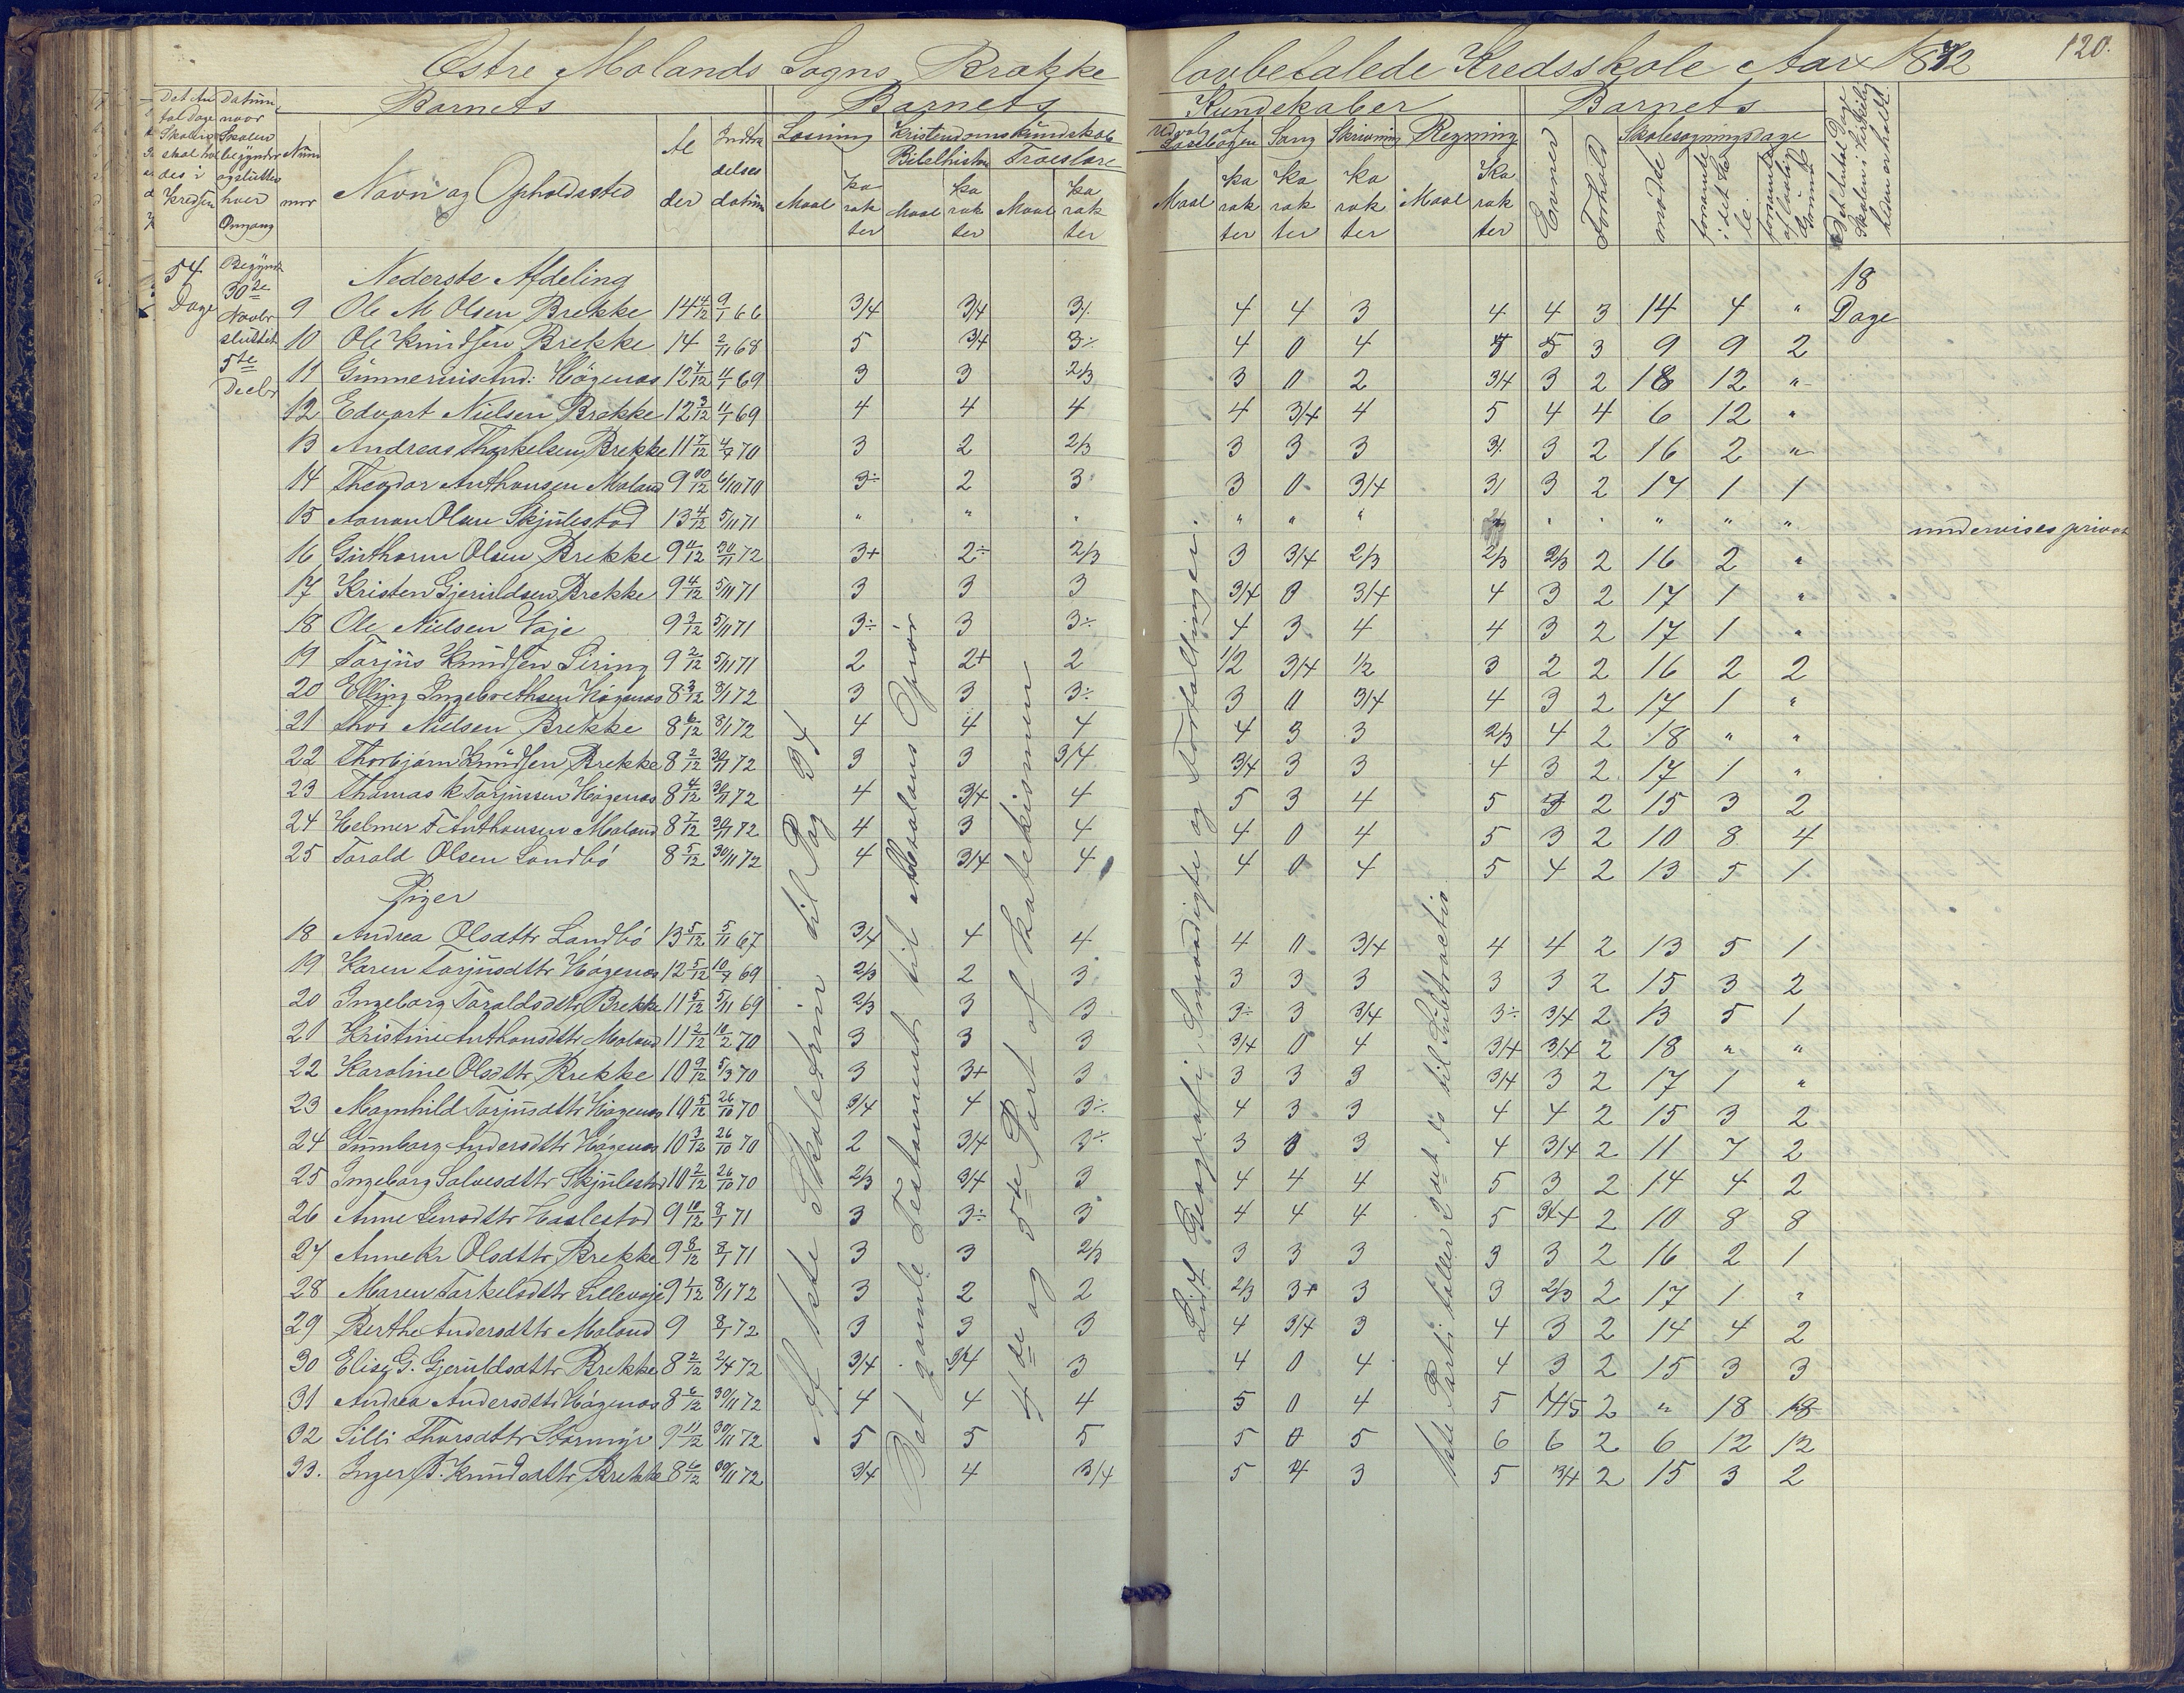 Østre Molands Sogns Brække lovbefalede Kredsskole Aar 1872
120.
Barnets Barnets Kundskaber Barnets
Det An tal Dage Skolen skal hol des i Kredsen
Datum naar Skolen begynder og slutter hver Omgang
Num mer
Navn og Opholdssted
Al der
Indtræ delses datum
Læsning
Kristendomskundskab
Bibelhistorie Troeslære
Maal Ka rak ter Maal Ka rak ter Maal Ka rak ter
Udvalg af Læsebogen Sang Skrivning Regning
Maal Ka rak ter Ka rak ter Ka rak ter Maal Ka rak ter
Evner Forhold
Skolesøgningsdage
mødte
forsømte i det Hele
forsømte af lovlig Grund
Det Antal Dage Skolen i Virkeligheden er holdt
54 Dage
Begyndt 30te Novbr sluttet 5te Decbr
18 Dage
Nederste Afdeling
9 Ole M Olsen Brekke 14 4/12 9/1 66 3/4 3/4 3/. 4 4 3 4 4 3 14 4 "
10 Ole Knudsen Brekke 14 2/11 68 5 3/4 3÷ 4 0 4 5 5 3 9 9 2
11 Gunnerius And: Högenæs 12 7/12 4/1 69 3 3 2/3 3 0 2 3/4 3 2 18 12 "
12 Edvart Nielsen Brekke 12 3/12 4/1 69 4 4 4 4 3/4 4 5 4 4 6 12 "
13 Andreas Thorkelsen Brekke 11 7/12 4/7 70 3 2 2/3 3 3 3 3/. 3 2 16 2 "
14 Theodor Anthonsen Moland 9 10/12 6/10 70 3÷ 2 3 3 0 3/4 3/ 3 2 17 1 1
15 Aanon Olsen Skjulestad 13 4/12 5/11 71 " " " " " " " " " " " undervises privat
16 Guthorm Olsen Brekke 9 4/12 30/11 72 3+ 2÷ 2/3 3 3/4 2/3 2/3 2/3 2 16 2 "
17 Kristen Gjeruldsen Brekke 9 4/12 5/11 71 3 3 3 3/4 0 3/4 4 3 2 17 1 "
18 Ole Nielsen Vaje 9 2/12 5/11 71 3÷ 3 3÷ 4 3 4 4 3 2 17 1 "
19 Tarjus Knudsen Liring 9 2/12 5/11 71 2 2+ 2 1/2 3/4 1/2 3 2 2 16 2 2
20 Elling Ingebrethsen Högenæs 8 3/12 8/1 72 3 3 3÷ 3 0 3/4 4 3 2 17 1 "
21 Thor Nielsen Brekke 8 6/12 8/1 72 4 4 4 4 3 3 2/3 4 2 18 " "
22 Thorbjørn Knudsen Brekke 8 2/12 30/11 72 3 3 3/4 3/4 3 3 4 3 2 17 1 "
23 Thomas K Tarjussen Högenæs 8 4/12 30/11 72 4 3/4 4 5 3 4 5 3 2 15 3 2
24 Helmer F Anthonsen Moland 8 7/12 30/11 72 4 3 4 4 0 4 5 3 2 10 8 4
25 Tarald Olsen Landbö 8 5/12 30/11 72 4 3/4 4 4 0 4 5 4 2 13 5 1
Piger
18 Andrea Olsdttr Landbö 13 5/12 5/11 67 3/4 4 4 4 0 3/4 4 4 2 13 5 1
19 Karen Tarjusdttr Högenæs 12 5/12 10/7 69 2/3 2 3 3 3 3 3 3 2 15 3 2
20 Ingeborg Taraldsdttr Brekke 11 5/12 5/11 69 2/3 3 3 3÷ 3 3/4 3÷ 3/4 2 13 5 1
21 Kristine Anthonsdttr Moland 11 2/12 10/2 70 3 3 3 3/4 0 4 3/4 3/4 2 18 " "
22 Karoline Olsdttr Brekke 10 9/12 5/3 70 3 3+ 3 3 3 3 3/4 3 2 17 1 "
23 Magnhild Tarjusdttr Högenæs 10 5/12 26/10 70 3/4 4 3÷ 4 3 3 4 4 2 15 3 2
24 Gunborg Andersdttr Högenæs 10 3/12 26/10 70 2 3/4 3÷ 3 0 3 4 3/4 2 11 7 2
25 Ingeborg Salvesdttr Skjulestad 10 2/12 26/10 70 2/3 3/4 3 4 4 4 5 3 2 14 4 2
26 Anne Jensdttr Haslestad 9 10/12 8/1 71 3 3÷ 3 4 4 4 5 3/4 2 10 8 8
27 Anne Kr Olsdttr Brekke 9 8/12 8/1 71 3 3 2/3 3 3 3 3 3 2 16 2 1
28 Maren Tarkelsdttr Lillevaje 9 1/12 8/1 72 3 2 2 2/3 3+ 3 3 2/3 2 17 1 "
29 Berthe Andersdttr Moland 9 8/1 72 3 3 3 4 3/4 3 4 3 2 14 4 2
30 Elise G. Gjeruldsdttr Brekke 8 2/12 2/4 72 3/4 3/4 3 4 0 4 4 3 2 15 3 3
31 Andrea Andersdttr Högenæs 8 6/12 30/11 72 4 4 4 5 0 4 5 4/5 2 " 18 18
32 Silli Thorsdttr Stormyr 9 11/12 30/11 72 5 5 5 5 0 5 6 6 2 6 12 12
33. Inger B. Knudsdttr Brekke 8 6/12 30/11 72 3/4 4 3/4 5 4 3 5 3/4 2 15 3 2
Af 1ste Skoletrin til Pag 34
Det gamle Testamente til Absalons Oprør
4de og 5te Part af Katekismen
Lidt Geografi, Smaadigte og Fortællinger.
1ste Parti tæller 2det do til Subtraction